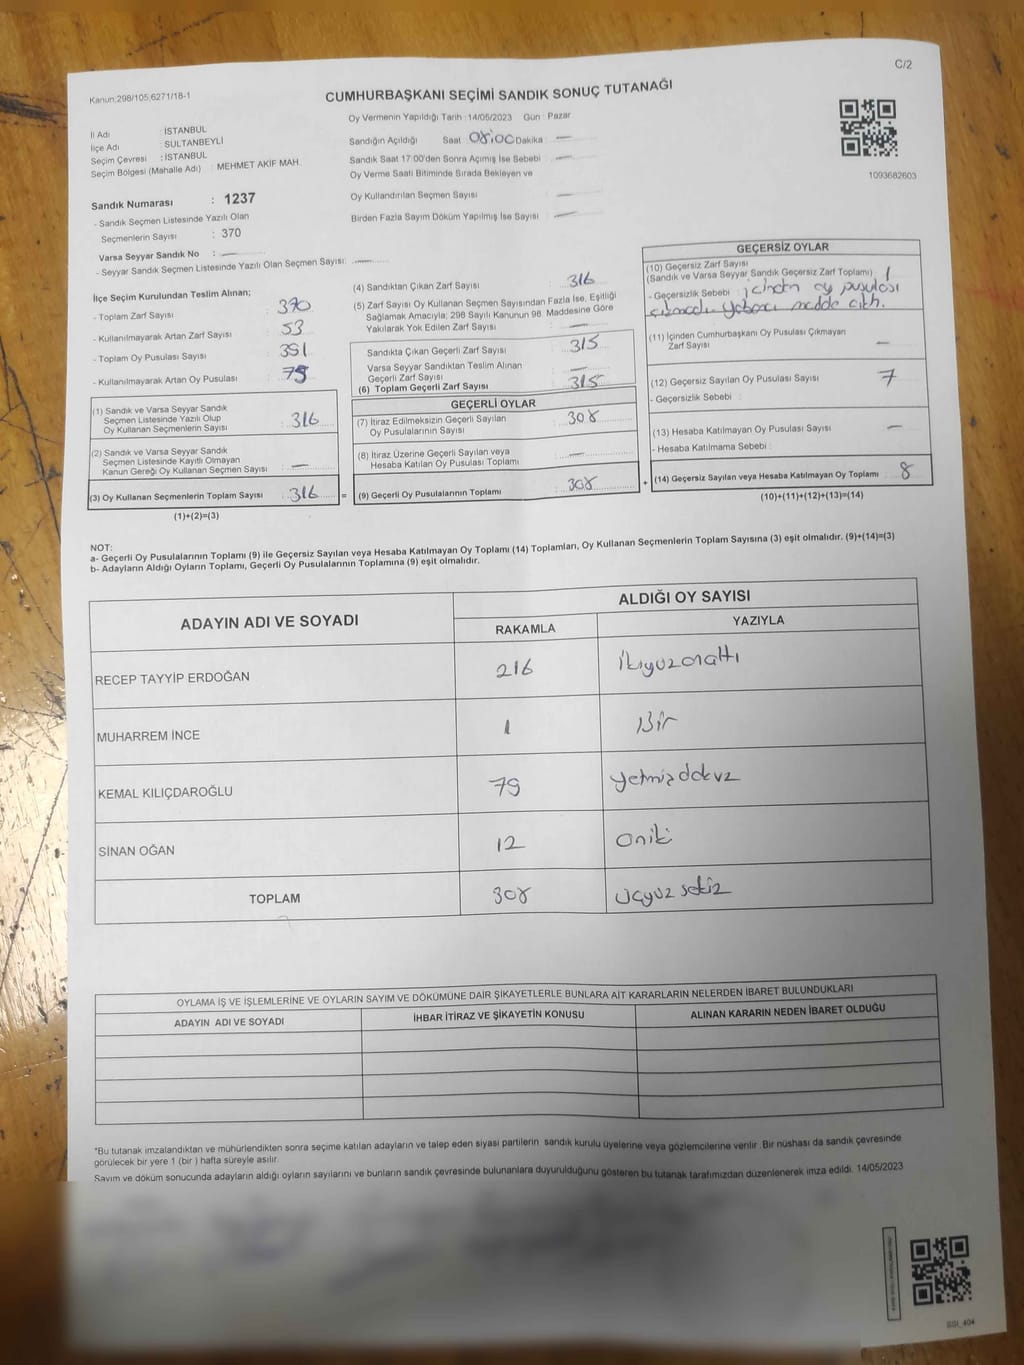 C/2
Kanun:298/105,6271/18-1
CUMHURBAŞKANI SEÇİMİ SANDIK SONUÇ TUTANAĞI
Oy Vermenin Yapıldığı Tarih : 14/05/2023 Gün : Pazar
İl Adı : İSTANBUL
İlçe Adı : SULTANBEYLİ
Seçim Çevresi : İSTANBUL
Seçim Bölgesi (Mahalle Adı) : MEHMET AKİF MAH.
Sandığın Açıldığı Saat 08:00 Dakika : —
Sandık Saat 17:00'den Sonra Açımış İse Sebebi : —
Oy Verme Saati Bitiminde Sırada Bekleyen ve
Oy Kullandırılan Seçmen Sayısı : —
Birden Fazla Sayım Döküm Yapılmış İse Sayısı : —
1093682603
Sandık Numarası : 1237
- Sandık Seçmen Listesinde Yazılı Olan
Seçmenlerin Sayısı : 370
Varsa Seyyar Sandık No : —
- Seyyar Sandık Seçmen Listesinde Yazılı Olan Seçmen Sayısı: —
İlçe Seçim Kurulundan Teslim Alınan;
- Toplam Zarf Sayısı : 370
- Kullanılmayarak Artan Zarf Sayısı : 53
- Toplam Oy Pusulası Sayısı : 391
- Kullanılmayarak Artan Oy Pusulası : 75
(1) Sandık ve Varsa Seyyar Sandık
Seçmen Listesinde Yazılı Olup
Oy Kullanan Seçmenlerin Sayısı : 316
(2) Sandık ve Varsa Seyyar Sandık
Seçmen Listesinde Kayıtlı Olmayan
Kanun Gereği Oy Kullanan Seçmen Sayısı : —
(3) Oy Kullanan Seçmenlerin Toplam Sayısı : 316 =
(1)+(2)=(3)
(4) Sandıktan Çıkan Zarf Sayısı : 316
(5) Zarf Sayısı Oy Kullanan Seçmen Sayısından Fazla İse, Eşitliği
Sağlamak Amacıyla; 298 Sayılı Kanunun 98. Maddesine Göre
Yakılarak Yok Edilen Zarf Sayısı : —
Sandıkta Çıkan Geçerli Zarf Sayısı : 315
Varsa Seyyar Sandıktan Teslim Alınan
Geçerli Zarf Sayısı : —
(6) Toplam Geçerli Zarf Sayısı : 315
GEÇERLİ OYLAR
(7) İtiraz Edilmeksizin Geçerli Sayılan
Oy Pusulalarının Sayısı : 308
(8) İtiraz Üzerine Geçerli Sayılan veya
Hesaba Katılan Oy Pusulası Toplamı : —
(9) Geçerli Oy Pusulalarının Toplamı : 308 +
GEÇERSİZ OYLAR
(10) Geçersiz Zarf Sayısı
(Sandık ve Varsa Seyyar Sandık Geçersiz Zarf Toplamı) : 1
- Geçersizlik Sebebi : içinden oy pusulası
çıkmadı yabancı madde çıktı.
(11) İçinden Cumhurbaşkanı Oy Pusulası Çıkmayan
Zarf Sayısı —
(12) Geçersiz Sayılan Oy Pusulası Sayısı : 7
- Geçersizlik Sebebi :
(13) Hesaba Katılmayan Oy Pusulası Sayısı : —
- Hesaba Katılmama Sebebi :
(14) Geçersiz Sayılan veya Hesaba Katılmayan Oy Toplamı : 8
(10)+(11)+(12)+(13)=(14)
NOT:
a- Geçerli Oy Pusulalarının Toplamı (9) ile Geçersiz Sayılan veya Hesaba Katılmayan Oy Toplamı (14) Toplamları, Oy Kullanan Seçmenlerin Toplam Sayısına (3) eşit olmalıdır. (9)+(14)=(3)
b- Adayların Aldığı Oyların Toplamı, Geçerli Oy Pusulalarının Toplamına (9) eşit olmalıdır.
ADAYIN ADI VE SOYADI ALDIĞI OY SAYISI
RAKAMLA YAZIYLA
RECEP TAYYİP ERDOĞAN 216 ikiyüzonaltı
MUHARREM İNCE 1 Bir
KEMAL KILIÇDAROĞLU 79 yetmişdokuz
SİNAN OĞAN 12 oniki
TOPLAM 308 üçyüz sekiz
OYLAMA İŞ VE İŞLEMLERİNE VE OYLARIN SAYIM VE DÖKÜMÜNE DAİR ŞİKAYETLERLE BUNLARA AİT KARARLARIN NELERDEN İBARET BULUNDUKLARI
ADAYIN ADI VE SOYADI İHBAR İTİRAZ VE ŞİKAYETİN KONUSU ALINAN KARARIN NEDEN İBARET OLDUĞU
*Bu tutanak imzalandıktan ve mühürlendikten sonra seçime katılan adayların ve talep eden siyasi partilerin sandık kurulu üyelerine veya gözlemcilerine verilir. Bir nüshası da sandık çevresinde
görülecek bir yere 1 (bir ) hafta süreyle asılır.
Sayım ve döküm sonucunda adayların aldığı oyların sayılarını ve bunların sandık çevresinde bulunanlara duyurulduğunu gösteren bu tutanak tarafımızdan düzenlenerek imza edildi. 14/05/2023
SSI_404